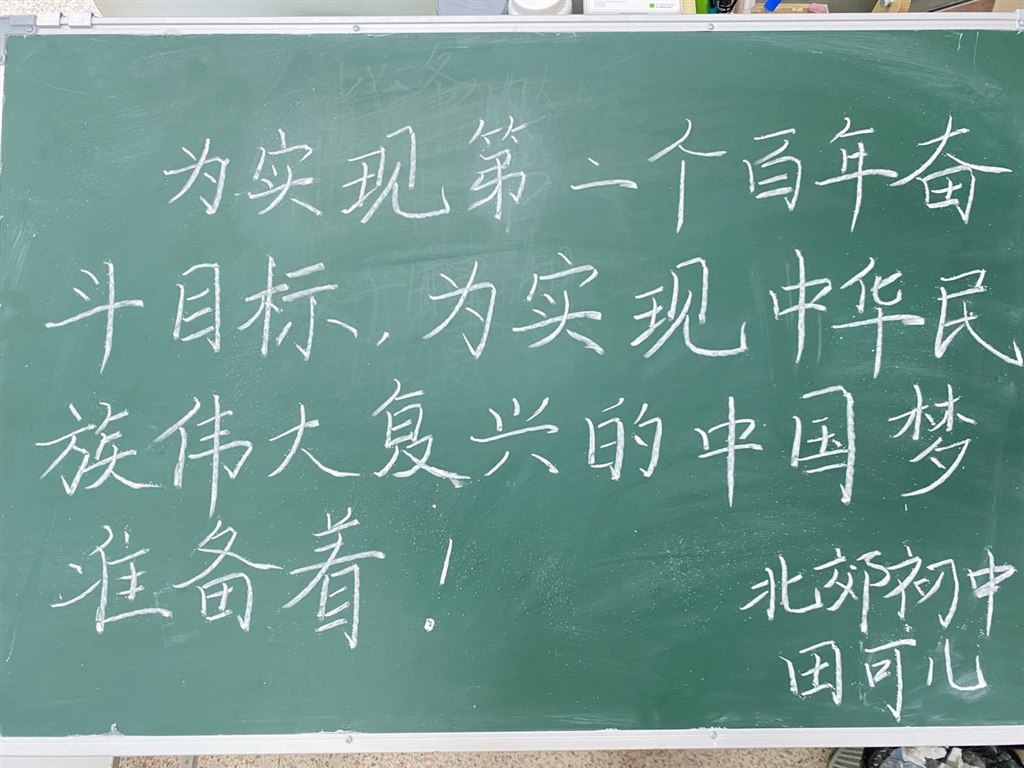 为实现第二个百年奋
斗目标,为实现中华民
族伟大复兴的中国梦
准备着!
北郊初中
田可儿